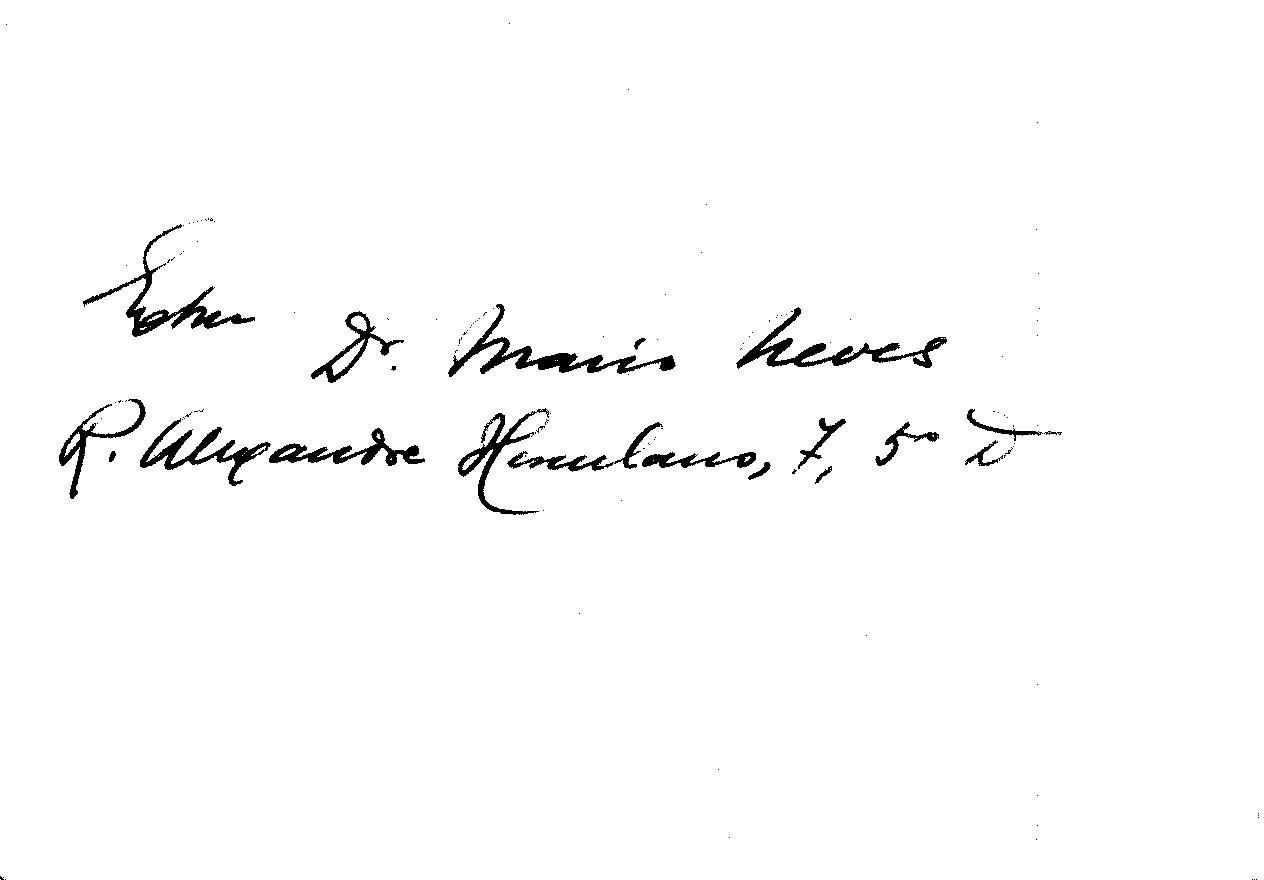 Exmo
Dr. Mario Neves
R. Alexandre Herculano, 7, 5º D